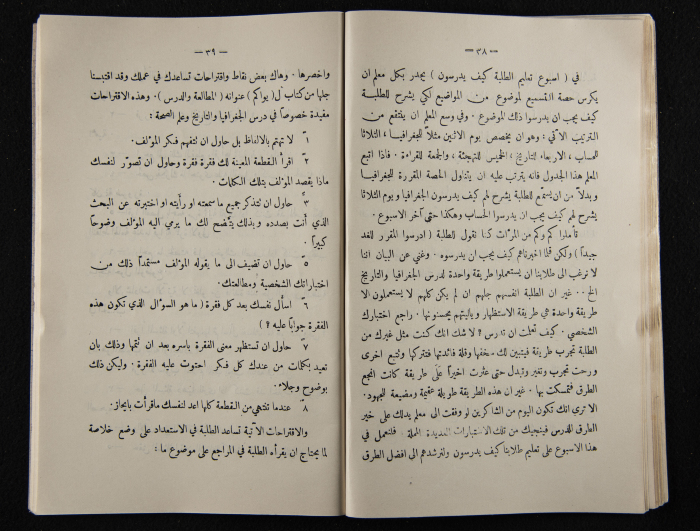 — ٣٨ —
في ( اسبوع تعليم الطلبة كيف يدرسون ) يجدر بكل معلم ان
يكرس حصة التسميع لموضوع من المواضيع لكي يشرح للطلبة
كيف يجب ان يدرسوا ذلك الموضوع . وفي وسع المعلم ان ينتفع من
الترتيب الآتي : وهو ان يخصص يوم الاثنين مثلاً للجغرافيا ، الثلاثا
للحساب ، الاربعاء للتاريخ ، الخميس للتهجئة ، والجمعة للقراءة . فاذا اتبع
المعلم هذا الجدول فانه يترتب عليه ان يتناول الحصة المقررة للجغرافيا
وبدلاً من ان يسمّع للطلبة يشرح لهم كيف يدرسون الجغرافيا ويوم الثلاثا
يشرح لهم كيف يجب ان يدرسوا الحساب وهكذا حتى آخر الاسبوع .
تأملوا كم وكم من المرّات كنا نقول للطلبة ( ادرسوا المقرر للغد
جيداً ) ولكن قلما اخبرناهم كيف يجب ان يدرسوه . وغني عن البيان اننا
لا نرغب الى طلابنا ان يستعملوا طريقة واحدة لدرس الجغرافيا والتاريخ
الخ .. غير ان الطلبة انفسهم جلهم ان لم يكن كلهم لا يستعملون الا
طريقة واحدة هي طريقة الاستظهار وياليتهم يحسنونها . راجع اختبارك
الشخصي . كيف تعلمت ان تدرس ؟ لا شك انك كنت مثل غيرك من
الطلبة تجرب طريقة فيتبين لك ضعفها وقلة فائدتها فتتركها وتتبع اخرى
ورحت تجرب وتغير وتبدل حتى عثرت اخيراً على طريقة كانت انجع
الطرق فتمسكت بها . غير ان هذه الطريقة طويلة عقيمة ومضيعة للجهود.
الا ترى انك تكون اليوم من الشاكرين لو وفقت الى معلم يدلك على خير
الطرق للدرس فينجيك من تلك الاختبارات العديدة المملة . فلنعمل في
هذا الاسبوع على تعليم طلابنا كيف يدرسون ولنرشدهم الى افضل الطرق
— ٣٩ —
واخصرها . وهاك بعض نقاط واقتراحات تساعدك في عملك وقد اقتبسنا
جلها من كتاب ل( يواكم ) عنوانه ( المطالعة والدرس ). وهذه الاقتراحات
مفيدة خصوصاً في درس الجغرافيا والتاريخ وعلم الصحة :
١ً لا تهتم بالالفاظ بل حاول ان تتفهم فكر المؤلف.
٢ً اقرأ القطعة المعينة لك فقرة فقرة وحاول ان تصوّر لنفسك
ماذا يقصد المؤلف بتلك الكلمات.
٣ً حاول ان تتذكر جميع ما سمعته او رأيته او اختبرته عن البحث
الذي أنت بصدده وبذلك يتّضح لك ما يرمي اليه المؤلف وضوحاً
كبيراً .
٥ً حاول ان تضيف الى ما يقوله المؤلف مستمداً ذلك من
اختباراتك الشخصية ومطالعتك.
٦ً اسأل نفسك بعد كل فقرة ( ما هو السوآل الذي تكون هذه
الفقرة جواباً عليه ؟ )
٧ً حاول ان تستظهر معنى الفقرة باسره بعد ان تتمّها وذلك بان
تعيد بكلمات من عندك كل فكر احتوت عليه الفقرة . وليكن ذلك
بوضوح وجلاء.
٨ً عندما تنتهي من القطعة كلها اعد لنفسك ماقرأت بايجاز.
والاقتراحات الآتية تساعد الطلبة في الاستعداد على وضع خلاصة
لما يحتاج ان يقرأه الطلبة في المراجع على موضوع ما :